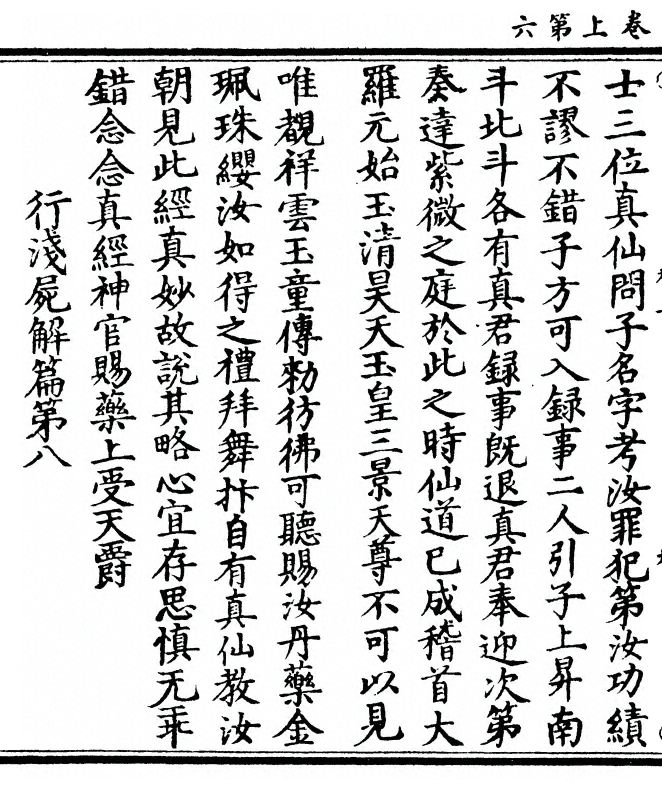 卷上第六
士三位真仙問子名字考汝罪犯第汝功績
不謬不錯子方可入録事二人引子上昇南
斗北斗各有真君録事既退真君奉迎次第
奏達紫微之庭於此之時仙道已成稽首大
羅元始玉清昊天玉皇三景天尊不可以見
唯覩祥雲玉童傳勑彷彿可聽賜汝丹藥金
珮珠纓汝如得之禮拜舞抃自有真仙教汝
朝見此經真妙故說其略心宜存思慎无乖
錯念念真經神官賜藥上受天爵
行淺屍解篇第八